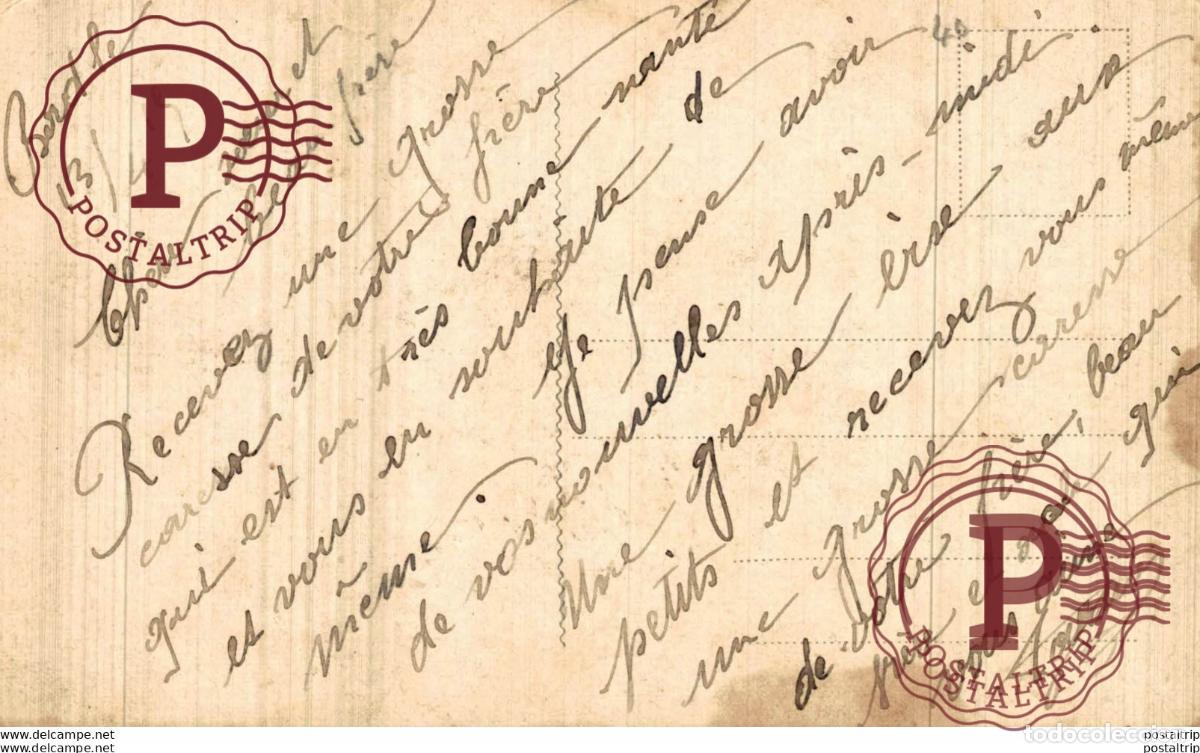 Cher et
Beau frère
Recevez une grosse
caresse de votre frère
qui est en très bonne santé
et vous en souhaite de
même. Je pense avoir
de vos nouvelles Après-midi
Une grosse bise aux
petits et recevez vous même
une grosse caresse
de votre frère, beau
qui
POSTALTRIP
POSTALTRIP
todocoleccion
www.todocoleccion.net
postaltrip
www.todocoleccion.net
postaltrip